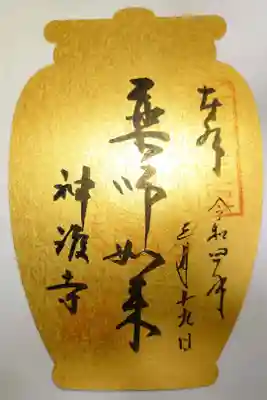 奉拝
令和四年
三月十九日
薬師如来
神護寺